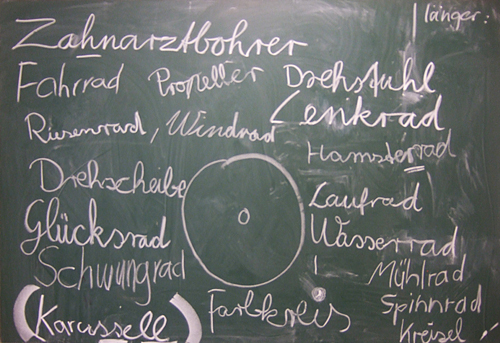 länger:
Zahnarztbohrer
Fahrrad Propeller Drehstuhl
Lenkrad
Riesenrad, Windrad
Hamsterrad
Drehscheibe
Laufrad
Glücksrad
Wasserrad
Schwungrad
Mühlrad
Farbkreis
Spinnrad
(Karussell)
Kreisel